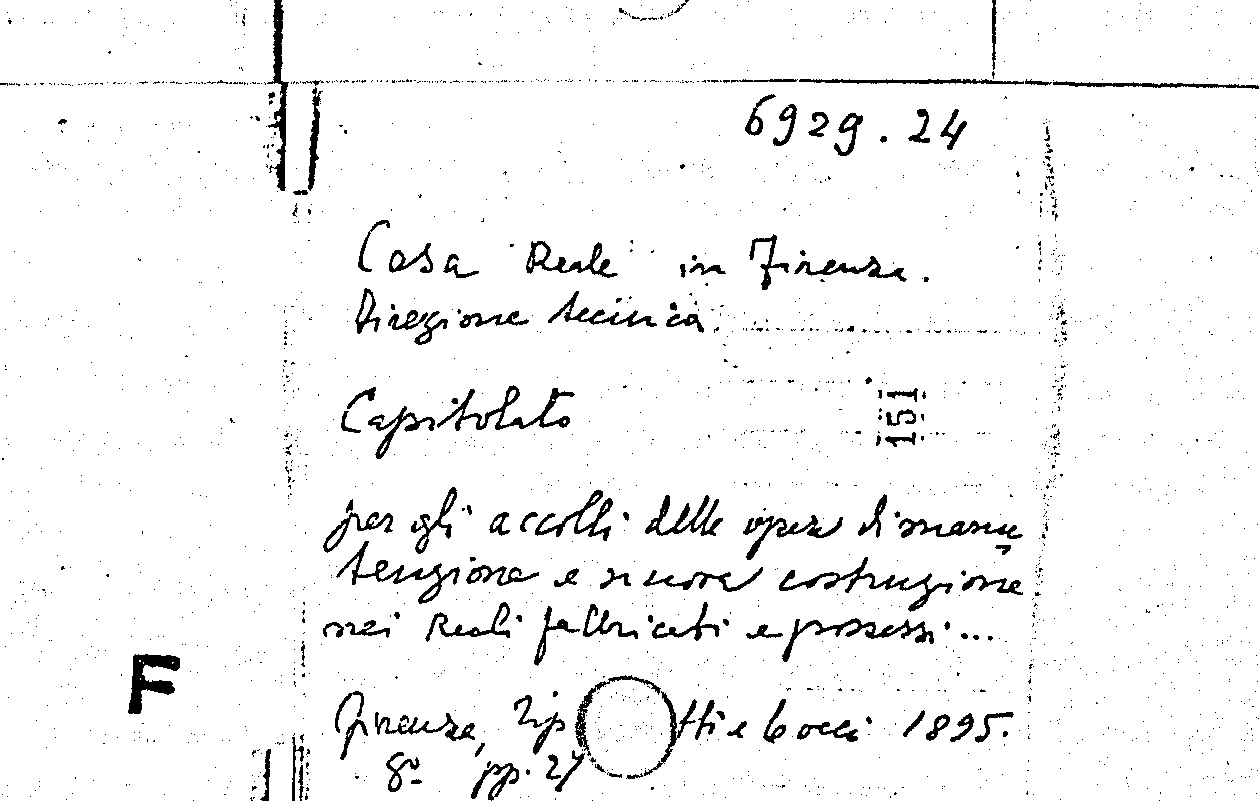 6929.24
Casa Reale in Firenze.
Direzione tecnica
Capitolato
151
per gli accolli delle opere di manu
tenzione e nuova costruzione
nei Reali fabbricati e possessi...
F
Firenze, Tip tti e Cocci 1895.
8º pp. 27